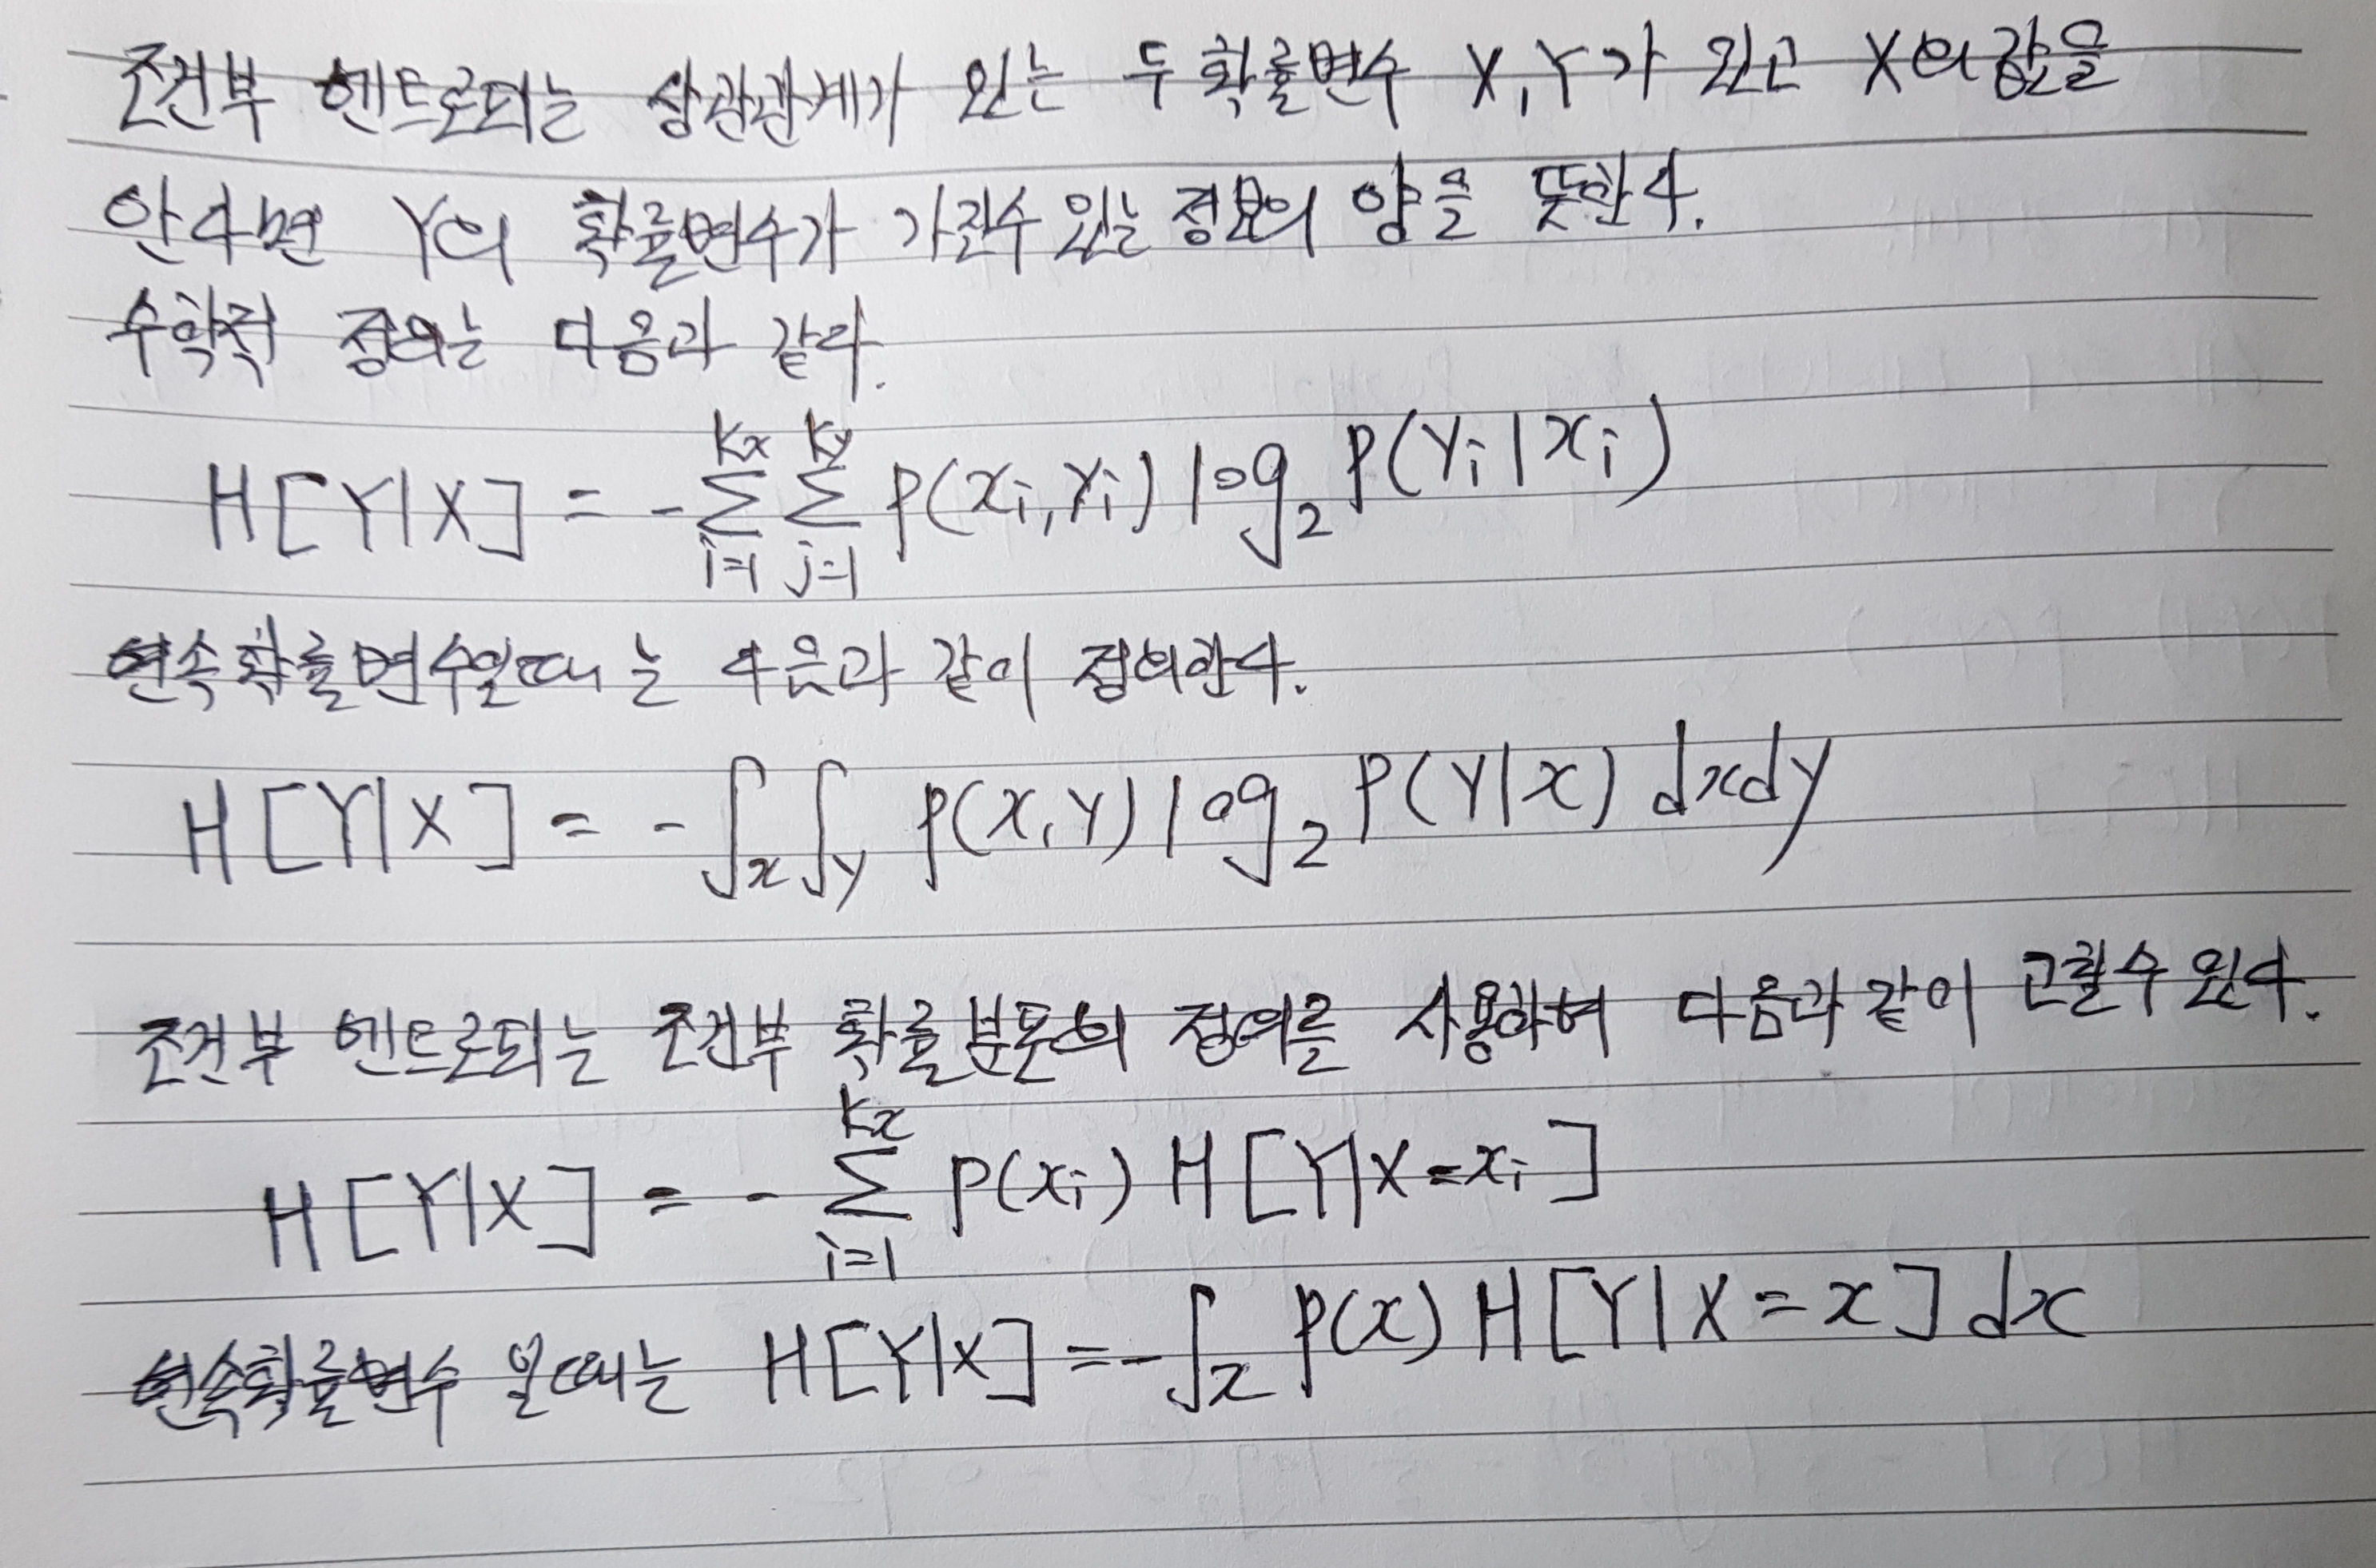 조건부 엔트로피는 상관관계가 있는 두 확률변수 X, Y가 있고 X의 값을
안다면 Y의 확률변수가 가진수 있는 정보의 양을 뜻한다.
수학적 정의는 다음과 같다.
H[Y|X] = -∑_{i=1}^{Kx} ∑_{j=1}^{Ky} p(xi, yi) log₂ p(yi|xi)
연속확률변수일때는 다음과 같이 정의한다.
H[Y|X] = -∫x∫y p(x,y) log₂ p(y|x) dxdy
조건부 엔트로피는 조건부 확률분포의 정의를 사용하여 다음과 같이 고칠수 있다.
H[Y|X] = -∑_{i=1}^{Kx} p(xi) H[Y|X=xi]
연속확률변수 일때는 H[Y|X] = -∫x p(x) H[Y|X=x] dx